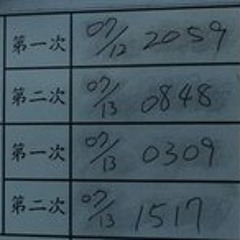 第一次 07/12 2059
第二次 07/13 0848
第一次 07/13 0309
第二次 07/13 1517